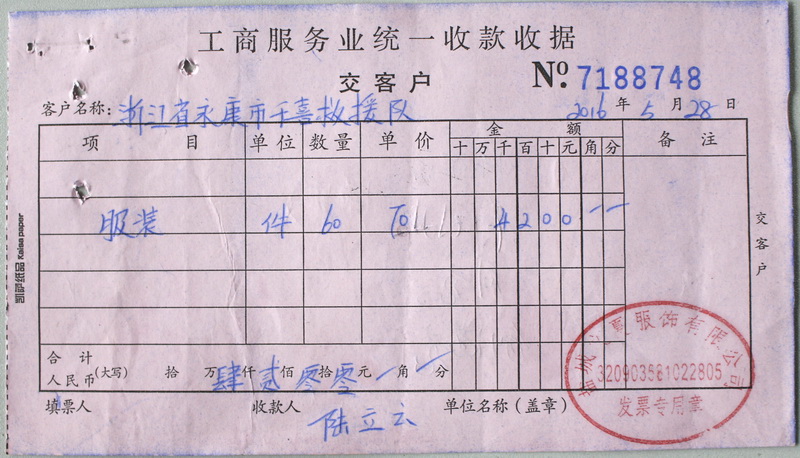 工商服务业统一收款收据
交客户
№ 7188748
客户名称: 浙江省永康市千喜救援队 2016年5月28日
项目 单位 数量 单价 金额 备注
十 万 千 百 十 元 角 分
服装 件 60 70 4 2 0 0 — —
合计
人民币(大写) 拾 万 肆仟 贰佰 零拾 零元 一角 一分
填票人 收款人 陆立云 单位名称(盖章)
服饰有限公司
320903581022805
发票专用章
交客户
凯丽纸品 Kailee paper